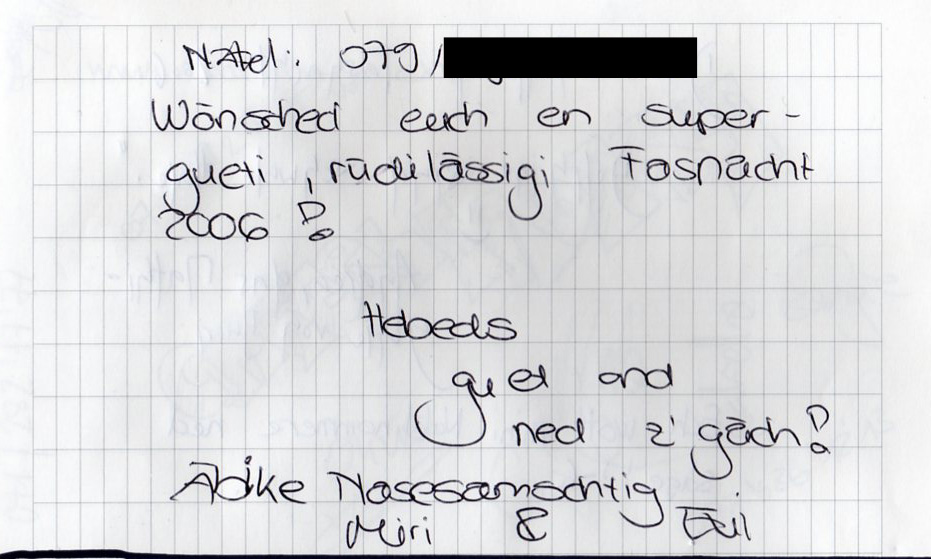 Natel: 079/
Wönsched euch en super-
gueti, rüdilässigi Fasnacht
2006!
Hebeds
guet and
ned z'gäch!
Adike Nasesamschtig
Miri &